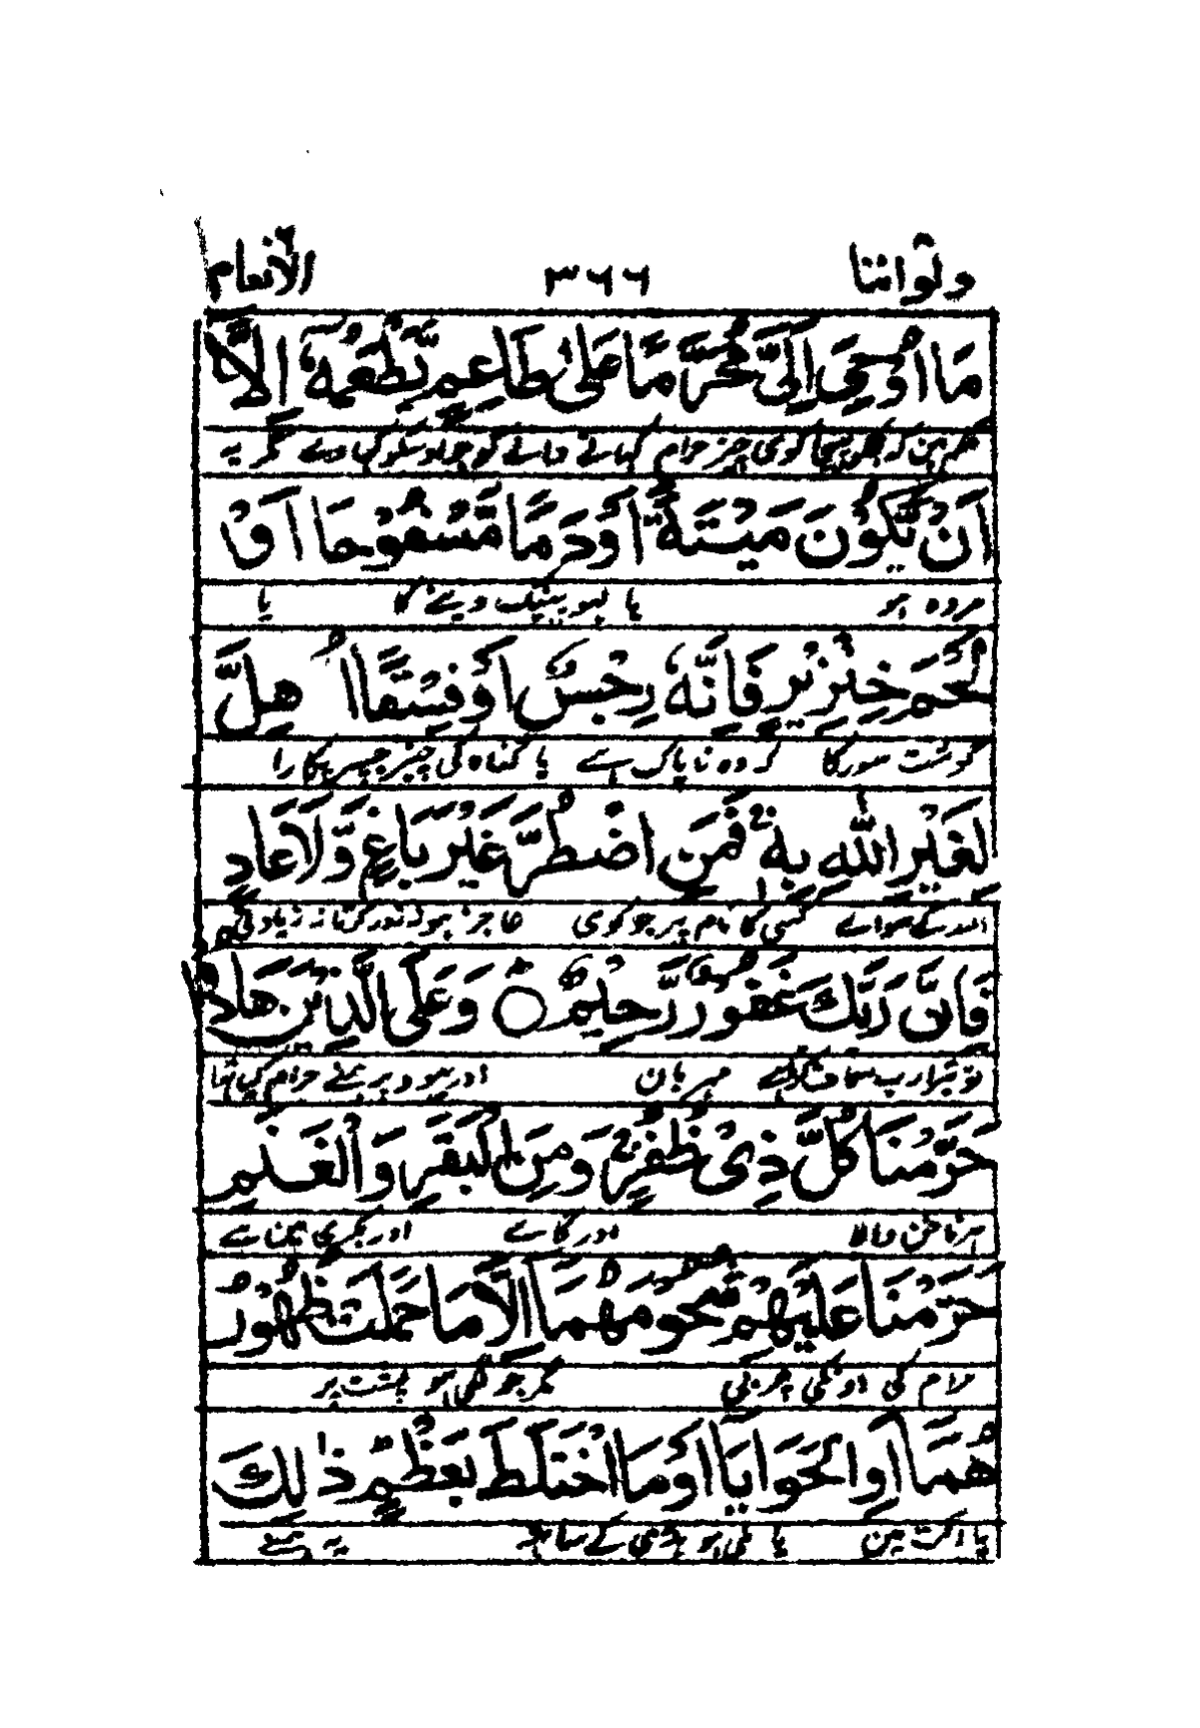 ولواننا ٣٦٦ الانعام
مَا أُوحِيَ إِلَيَّ مُحَرَّمًا عَلَىٰ طَاعِمٍ يَّطْعَمُهٗ إِلَّا
حرام کہانے والے کو مگر یہ
أَنْ يَّكُوْنَ مَيْتَةً أَوْ دَمًا مَّسْفُوْحًا أَوْ
مردہ ہو یا لہو پھینک دینے کا یا
لَحْمَ خِنْزِيْرٍ فَإِنَّهٗ رِجْسٌ أَوْ فِسْقًا أُهِلَّ
گوشت سور کا کہ وہ ناپاک ہے یا گناہ کی چیز جسپر پکارا
لِغَيْرِ اللهِ بِهٖ فَمَنِ اضْطُرَّ غَيْرَ بَاغٍ وَّلَا عَادٍ
اللہ کے سواے کسی کا نام پہر جو کوئی عاجز ہو نہ زور کرتا نہ زیادتی
فَإِنَّ رَبَّكَ غَفُوْرٌ رَّحِيْمٌ ○ وَعَلَى الَّذِيْنَ هَادُوْا
تو تیرا رب معاف کرتا ہے مہربان اور یہود پر ہمنے حرام کیا تہا
حَرَّمْنَا كُلَّ ذِيْ ظُفُرٍ وَمِنَ الْبَقَرِ وَالْغَنَمِ
ہر ناخن والا اور گاے اور بکری مین سے
حَرَّمْنَا عَلَيْهِمْ شُحُوْمَهُمَا إِلَّا مَا حَمَلَتْ ظُهُوْرُ
حرام کی اونکی چربی مگر جو لگی ہو پشت پر
هُمَا أَوِ الْحَوَايَا أَوْ مَا اخْتَلَطَ بِعَظْمٍ ذٰلِكَ
یا آنت مین یا ملی ہو ہڈی کے ساتہہ یہ ہمنے